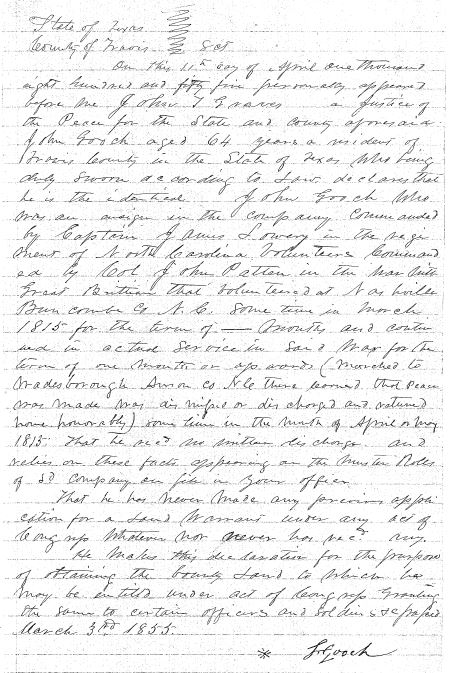 State of Texas
County of Travis Sct
On this 11th day of April one thousand
eight hundred and fifty five personally appeared
before me John T Graves a Justice of
the Peace for the State and County aforesaid
John Gooch aged 64 years a resident of
Travis County in the State of Texas who being
duly sworn according to Law declares that
he is the identical John Gooch who
was an ensign in the company commanded
by Captain James Lowery in the regi
ment of North Carolina Volunteers Command
ed by Col John Patten in the War with
Great Britian that volunteered at Nashville
Buncombe Co N. C. some time in March
1815 for the term of — months and contin
ued in actual service in said War for the
term of one month or upwards (marched to
Wadesborough Anson co N C there learned that peace
was made was dismissed or discharged and returned
home honorably) some time in the month of April or May
1815 that he recd no written discharge and
relies on these facts appearing on the Muster Roles
of sd company on file in your office
That he has never made any previous appli
cation for a Land Warrant under any act of
Congress whatever nor never has recd any.
He makes this declaration for the purpose
of obtaining the bounty Land to which he
may be entitled under act of Congress Granting
the same to certain officers and soldiers passed
March 3rd 1855.
* J Gooch